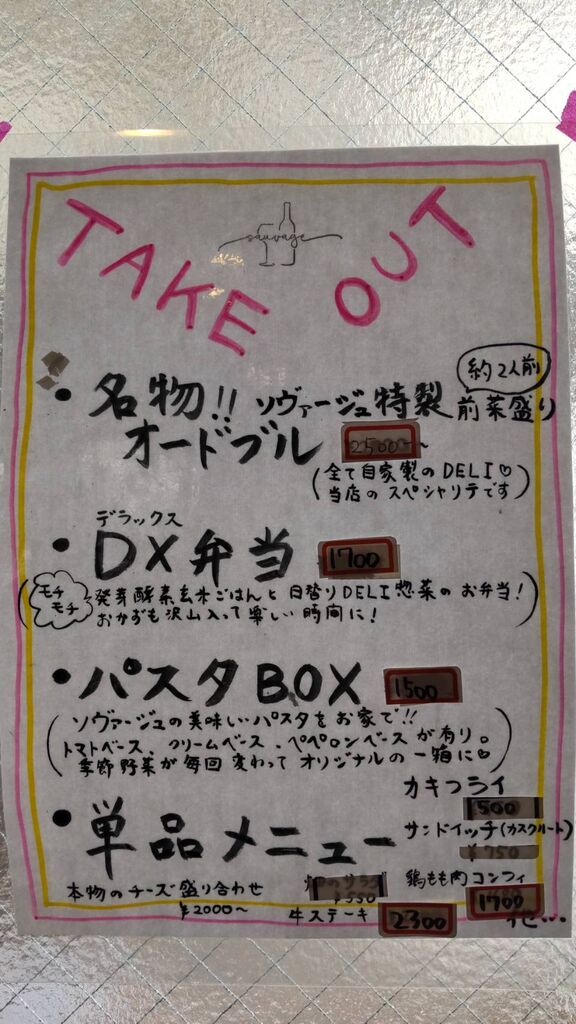 TAKE OUT
sauvage
約2人前
・名物!! ソヴァージュ特製 前菜盛り
オードブル 2500~
(全て自家製のDELI♡
当店のスペシャリテです)
デラックス
・DX弁当 1700
モチモチ
(発芽酵素玄米ごはんと日替りDELI惣菜のお弁当!
おかずも沢山入って楽しい時間に!)
・パスタBOX 1500
(ソヴァージュの美味しいパスタをお家で!!
トマトベース、クリームベース、ペペロンベースが有り。
季節野菜が毎回変わってオリジナルの一箱に♡)
・単品メニュー
カキフライ
500
サンドイッチ(カスクルート)
¥750
本物のチーズ盛り合わせ
¥2000~
サラダ
¥550
鶏もも肉コンフィ
1700
牛ステーキ 2300
他…